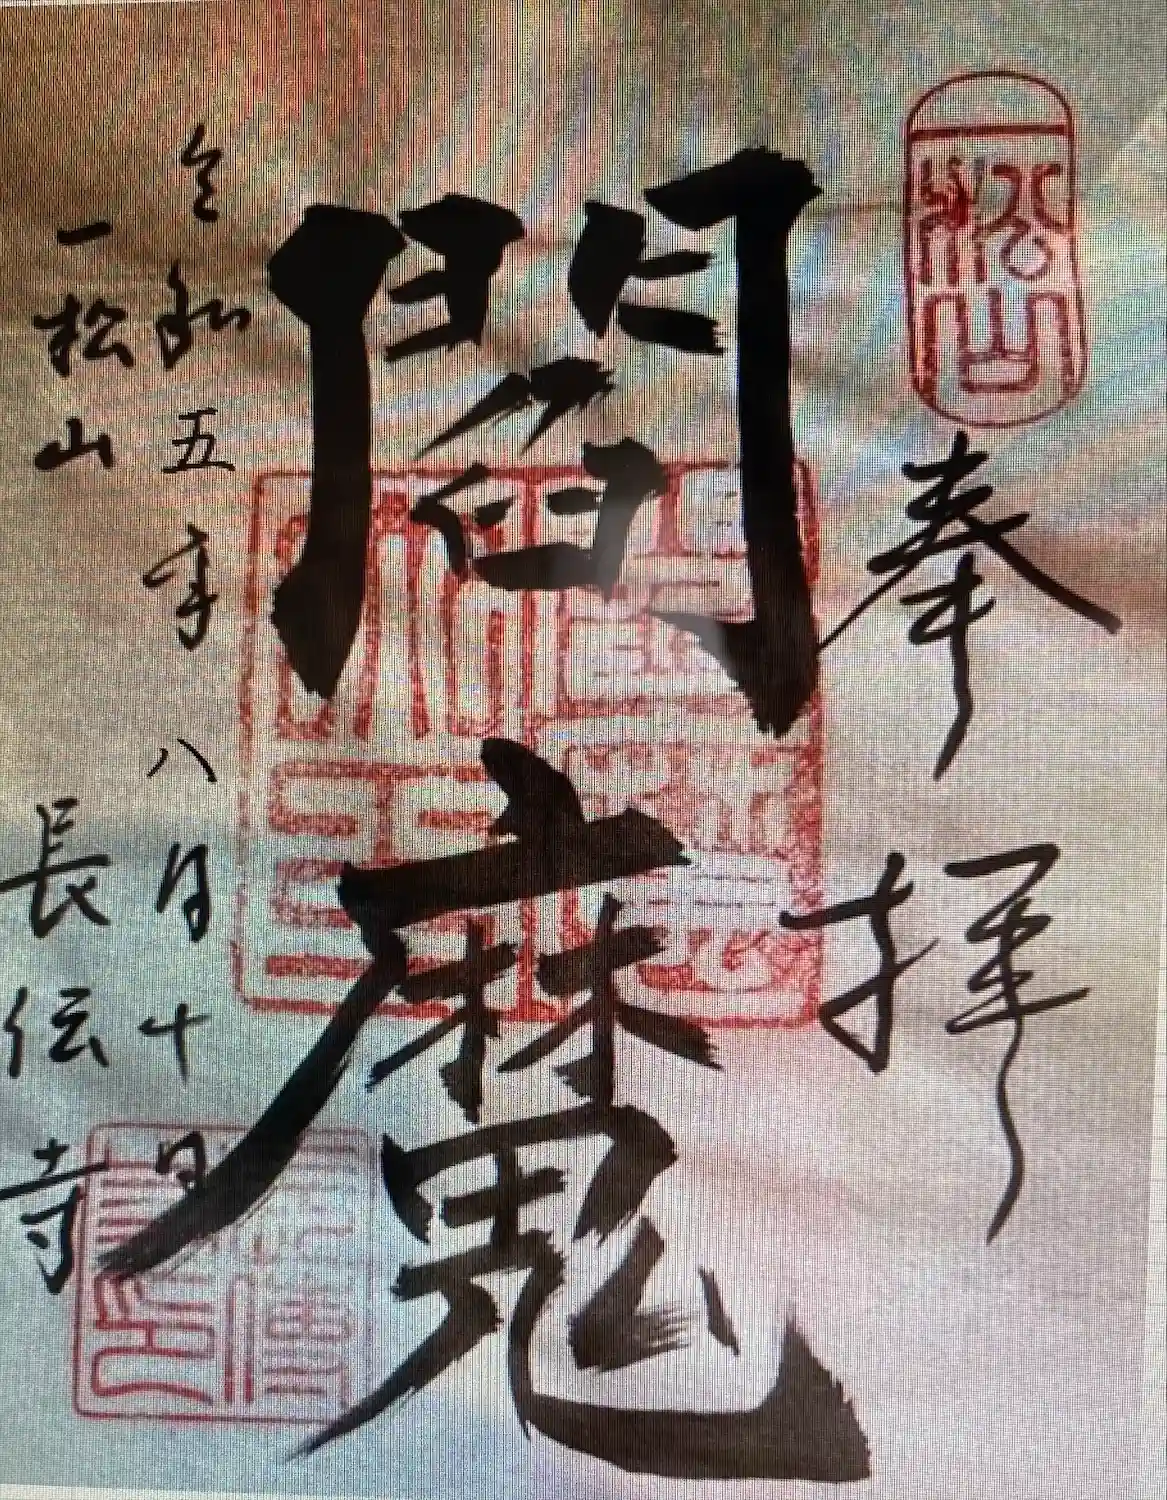 一松山
奉拝
閻魔
令和五年八月十日
一松山 長伝寺